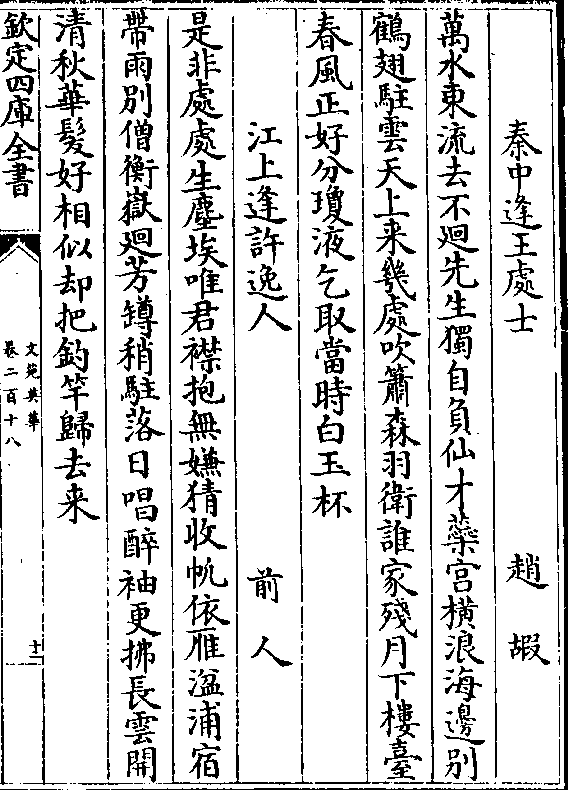 秦中逢王處士　趙嘏
萬水東流去不廻先生獨自負仙才藥宫橫浪海邊別
鶴翅駐雲天上来幾處吹簫森羽衛誰家殘月下樓臺
春風正好分瓊液乞取當時白玉杯
江上逢許逸人　前人
是非處處生塵埃唯君襟抱無嫌猜收帆依雁湓浦宿
帶雨別僧衡嶽廻芳罇稍駐落日唱醉袖更拂長雲開
清秋華髮好相似却把釣竿歸去来
欽定四庫全書
文苑英華
卷二百十八
十一